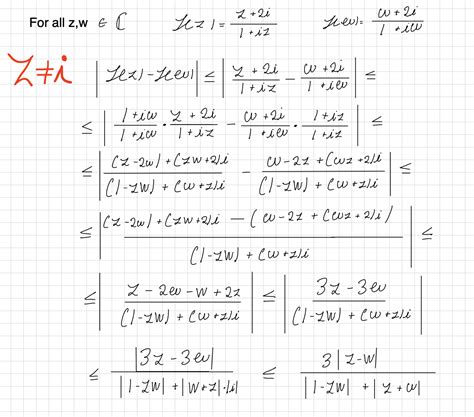 For all z,w ∈ ℂ f(z) = (z+2i)/(1+iz) f(w) = (w+2i)/(1+iw)
z≠i
|f(z)-f(w)| ≤ |(z+2i)/(1+iz) - (w+2i)/(1+iw)| ≤
≤ |(1+iw)/(1+iw) · (z+2i)/(1+iz) - (w+2i)/(1+iw) · (1+iz)/(1+iz)| ≤
≤ |((z-2w)+(zw+2)i)/((1-zw)+(w+z)i) - (w-2z+(wz+2)i)/((1-zw)+(w+z)i)| ≤
≤ |((z-2w)+(zw+2)i-(w-2z+(wz+2)i))/((1-zw)+(w+z)i)| ≤
≤ |(z-2w-w+2z)/((1-zw)+(w+z)i)| ≤ |(3z-3w)/((1-zw)+(w+z)i)|
≤ |3z-3w|/(|1-zw|+|w+z|·|i|) ≤ 3|z-w|/(|1-zw|+|z+w|)